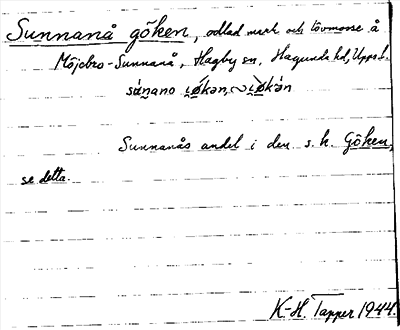 Sunnanå göken, odlad mark och lövmosse å
Möjebro-Sunnanå, Hagby sn, Hagunda hd, Uppsl.
Sunnanås andel i den s. k. Göken,
se detta.
K-H. Tapper 1944.